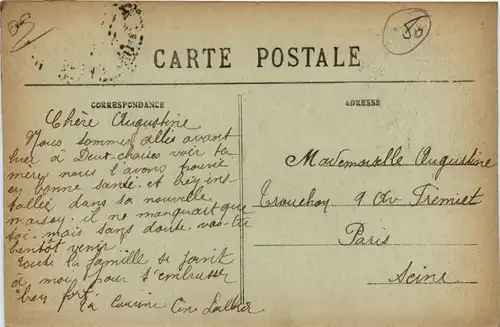 80
CARTE POSTALE
CORRESPONDANCE
ADRESSE
Chère Augustine
Nous sommes allés avant
hier à Deux-chaises voir ta
mère nous l'avons trouvé
en bonne santé. et bien ins
tallée, dans sa nouvelle
maison. il ne manquait que
toi. mais sans doute vas-tu
bientôt venir
toute la famille se joint
à moi pour t'embrasser
bien fort.
ta cousine
Mademoiselle Augustine
9 Av Frémiet
Paris
Seine